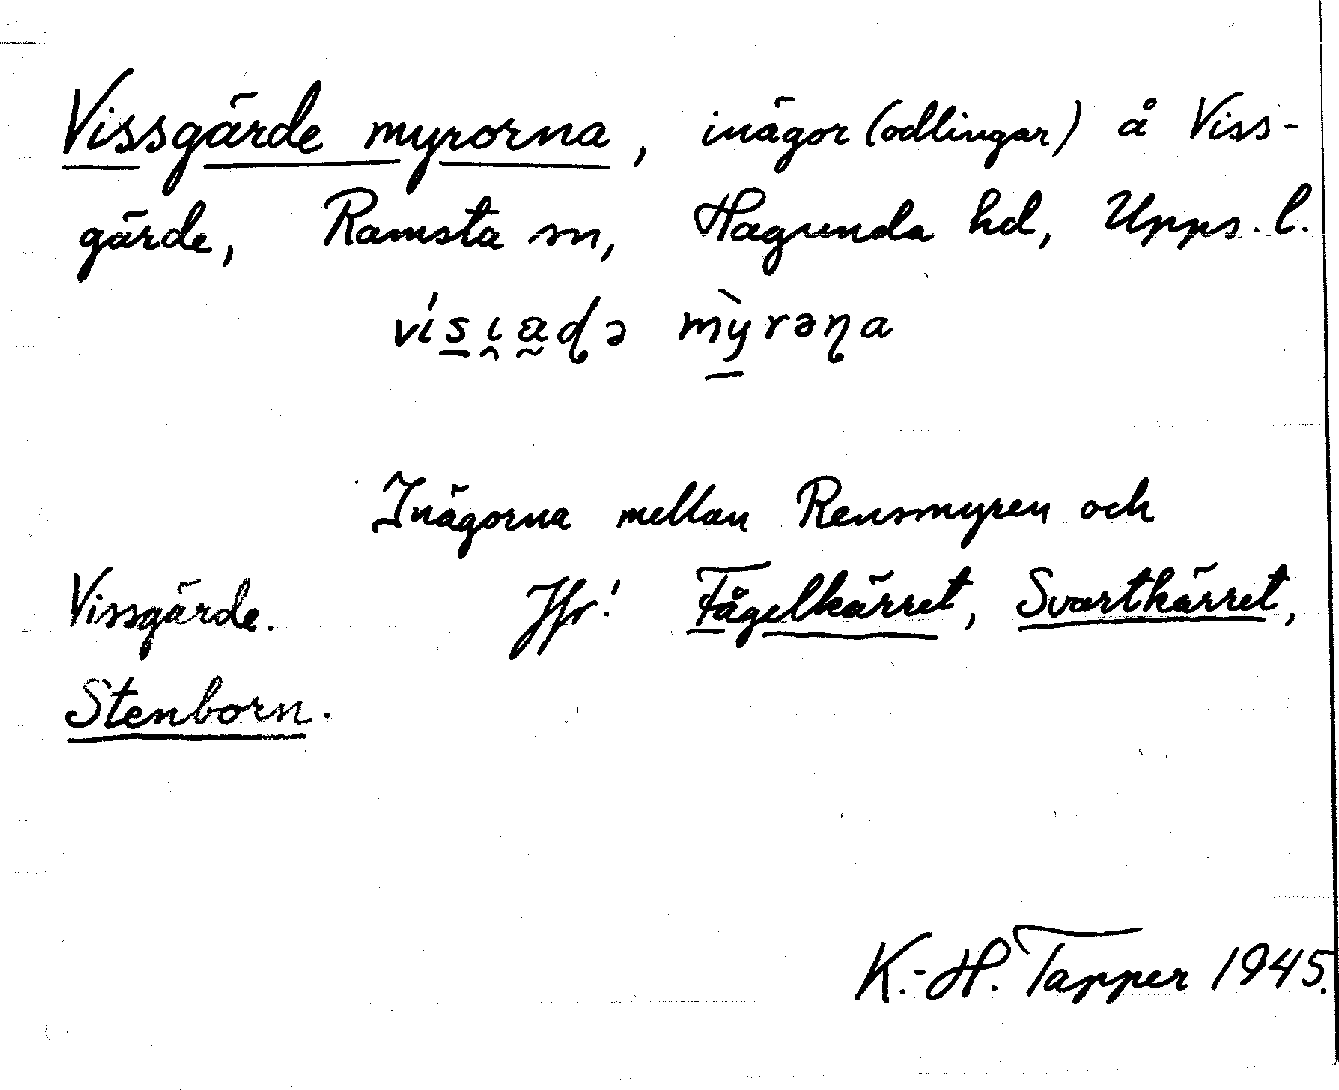 Vissgärde myrorna, inägor (odlingar) å Viss-
gärde, Ramsta sn, Hagunda hd, Upps. l.
Inägorna mellan Rensmyren och
Vissgärde. Jfr! Fågelkärret, Svartkärret,
Stenborn.
K.-H. Tapper 1945.